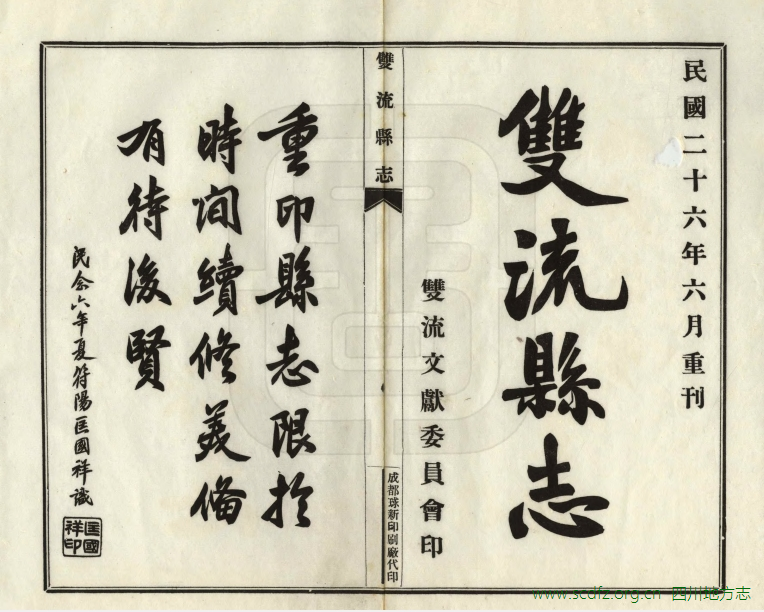 民國二十六年六月重刊
雙流縣志
雙流文獻委員會印
雙流縣志
成都球新印刷廠代印
重印縣志限於
時间續修羙俻
有待後賢
民廿六年夏符陽匡國祥識
匡國祥印
www.scdfz.org.cn 四川地方志